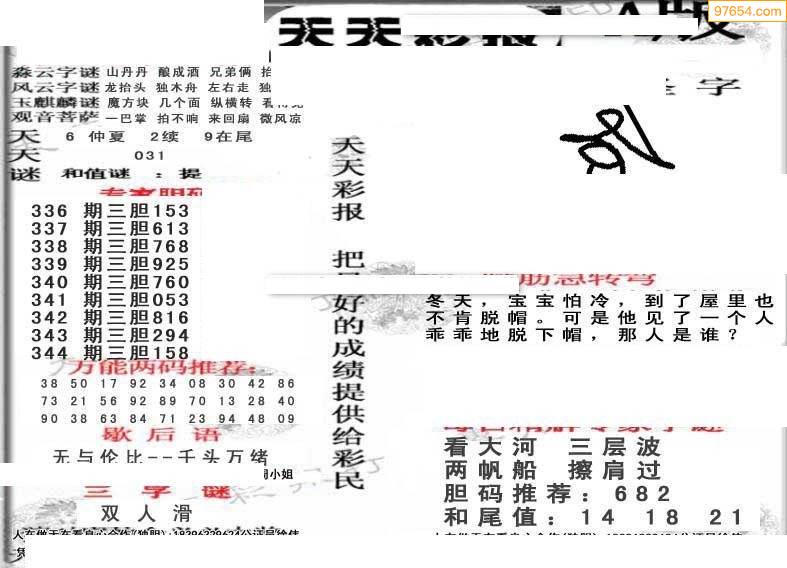 97654.com
天天彩报 A版
淼云字谜 山丹丹 酿成酒 兄弟俩
风云字谜 龙抬头 独木舟 左右走 独
玉麒麟谜 魔方块 几个面 纵横转
观音菩萨 一巴掌 拍不响 来回扇 微风凉
天 6 仲夏 2续 9在尾
天 031
谜 和值谜 ：提
字
336 期三胆153
337 期三胆613
338 期三胆768
339 期三胆925
340 期三胆760
341 期三胆053
342 期三胆816
343 期三胆294
344 期三胆158
万能两码推荐:
38 50 17 92 34 08 30 42 86
73 21 56 92 89 70 13 28 40
90 38 63 84 71 23 94 48 09
歇后语
无与伦比--千头万绪
小姐
三字谜
双人滑
天天彩报 把最好的成绩提供给彩民
脑筋急转弯
冬天，宝宝怕冷，到了屋里也
不肯脱帽。可是他见了一个人
乖乖地脱下帽，那人是谁？
看大河 三层波
两帆船 擦肩过
胆码推荐：682
和尾值：14 18 21